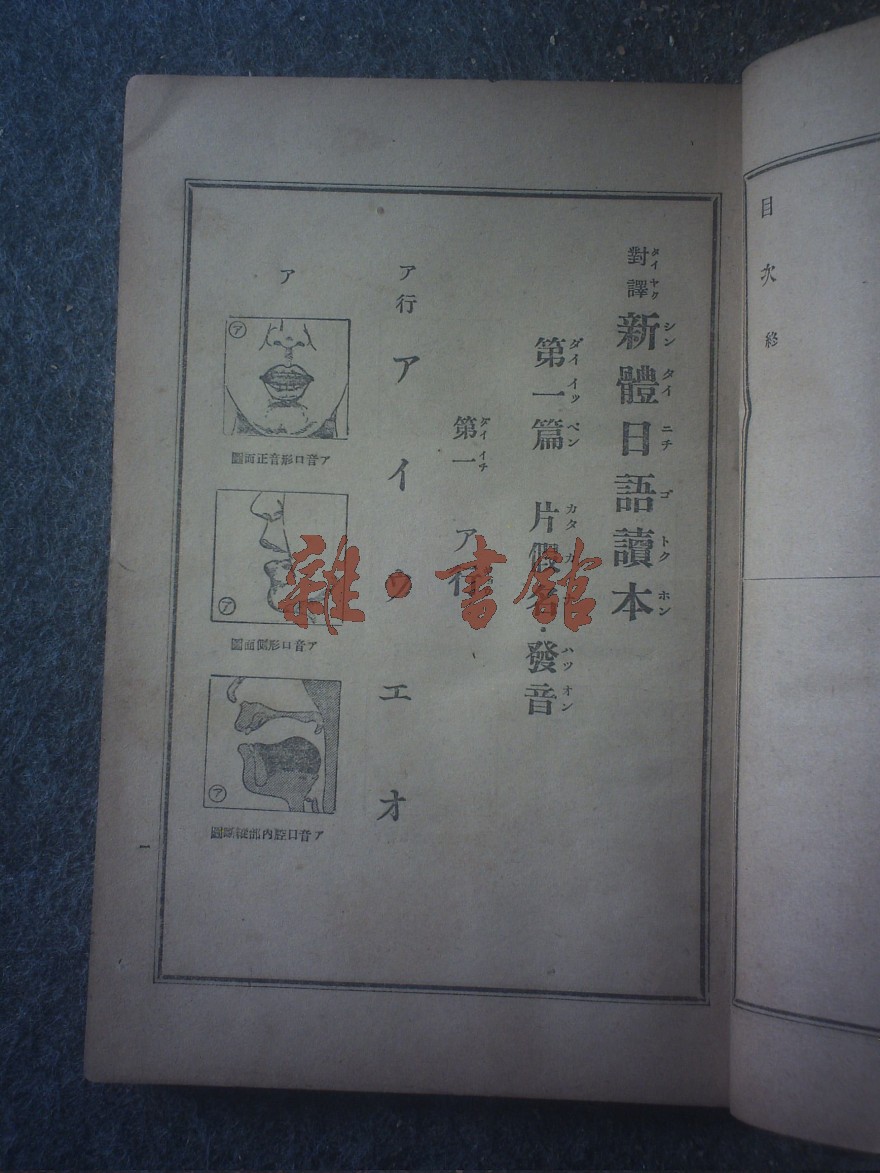 目次終
對譯新體日語讀本
タイヤクシンタイニチゴトクホン
第一篇 片假名・發音
ダイイッペン カタカナ ハツオン
第一 ア行
ダイイチ
ア行 アイウエオ
ア
ア
ア音口形音正面圖
ア
ア音口形側面圖
ア
ア音口腔內部縱斷圖
一
雜・書館